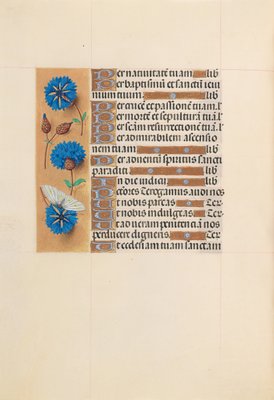 Per natiuitatē tuam lib
Per baptismū et sanctū ieiu
nium tuum lib
Per crucē et passionē tuam. l
Per mortē et sepulturā tuā. l
Per scām resurrectionē tuā. l
Per admirabilem ascensio
nem tuam lib
Per aduentū spiritus sancti
paracliti lib
In die iudicii lib
Peccatores Te rogamus audi nos
Ut nobis parcas Te r
Ut nobis indulgeas Te r
Ut ad ueram penitenciā nos
perducere digneris Te r
Ut ecclesiam tuam sanctam